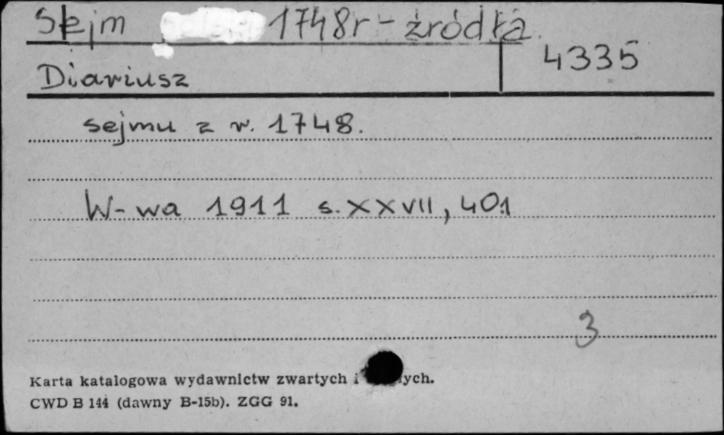 Sejm 1748r - źródła
4335
Diariusz
sejmu z r. 1748.
W-wa 1911 s. XXVII, 401
3
Karta katalogowa wydawnictw zwartych i ych.
CWD B 144 (dawny B-15b). ZGG 91.